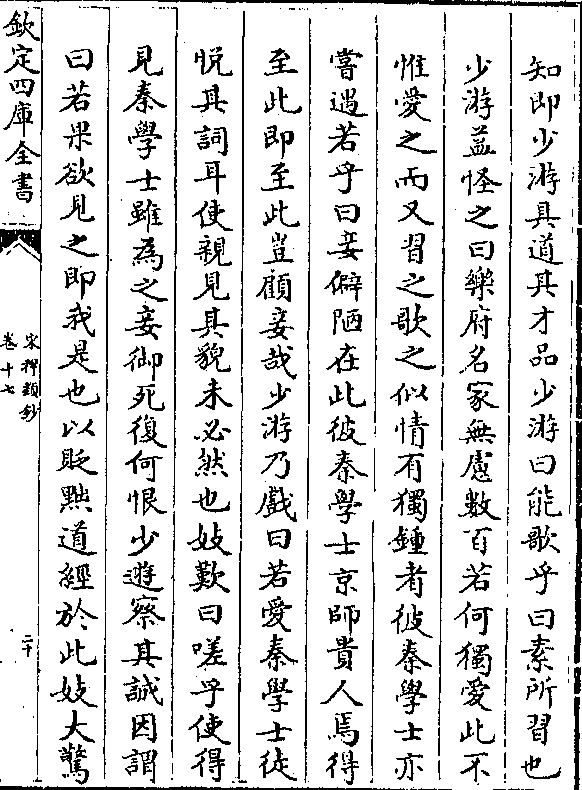 知即少游具道其才品少游曰能歌乎曰素所習也
少游益怪之曰樂府名家無慮數百若何獨愛此不
惟愛之而又習之歌之似情有獨鍾者彼秦學士亦
嘗遇若乎曰妾僻陋在此彼秦學士京師貴人焉得
至此即至此豈顧妾哉少游乃戲曰若愛秦學士徒
悅其詞耳使親見其貌未必然也妓歎曰嗟乎使得
見秦學士雖為之妾御死復何恨少遊察其誠因謂
曰若果欲見之即我是也以貶黜道經於此妓大驚
欽定四庫全書
宋稗類鈔
卷十七
二十